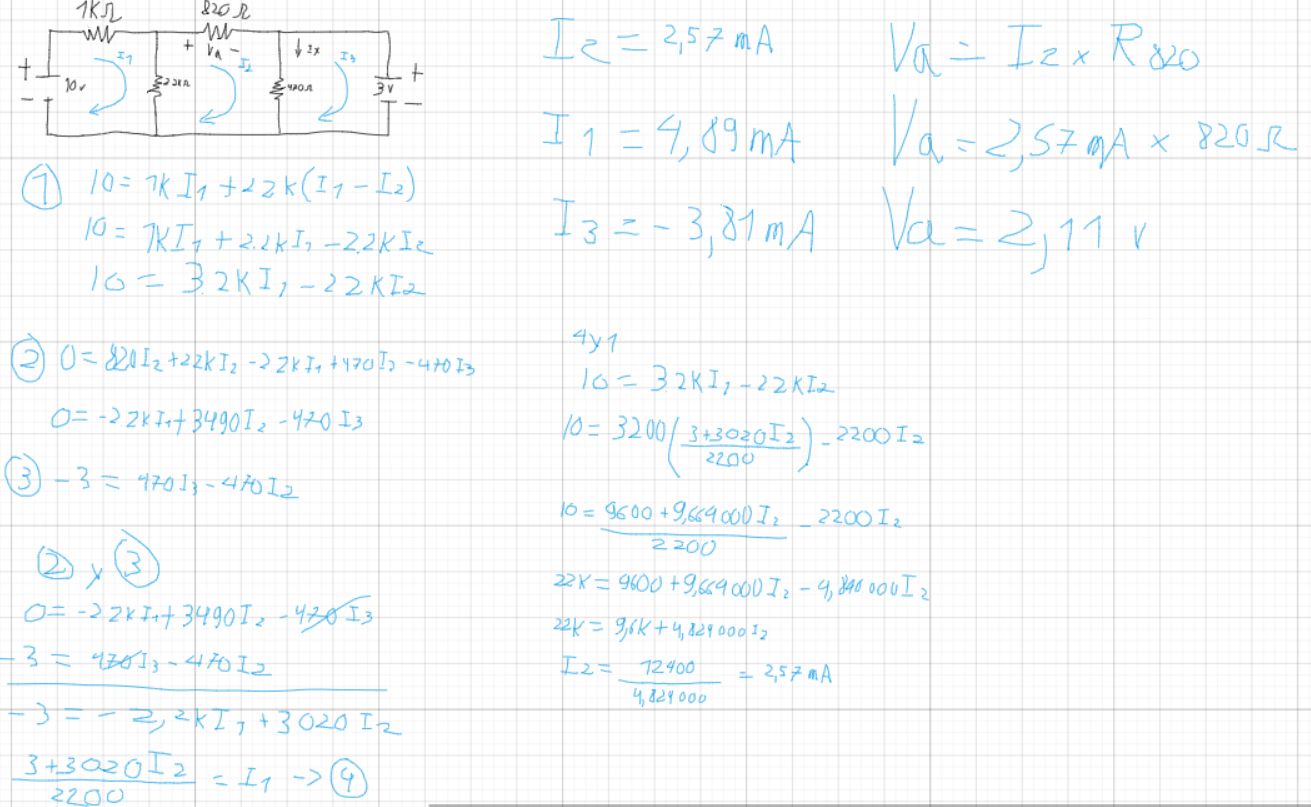 1KΩ 820Ω
+ VA -
↓ Ix
I1 I2 I3
+ 10v - 2.2kΩ 470Ω 3v + -
① 10 = 1K I1 + 2.2k(I1 - I2)
10 = 1KI1 + 2.2kI1 - 2.2kI2
10 = 3.2KI1 - 2.2KI2
② 0 = 820I2 + 2.2kI2 - 2.2kI1 + 470I2 - 470I3
0 = -2.2KI1 + 3490I2 - 470I3
③ -3 = 470I3 - 470I2
② y ③
0 = -2.2KI1 + 3490I2 - 470I3
-3 = 470I3 - 470I2
-3 = - 2,2kI1 + 3020I2
3+3020I2 / 2200 = I1 -> ④
I2 = 2,57mA
I1 = 4,89mA
I3 = -3,81mA
Va = I2 x R820
Va = 2,57mA x 820Ω
Va = 2,11v
4y1
10 = 3.2KI1 - 2.2KI2
10 = 3200(3+3020I2 / 2200) - 2200I2
10 = 9600 + 9,664000I2 / 2200 - 2200I2
22K = 9600 + 9,664000I2 - 4,840000I2
22K = 9,6K + 4,824000I2
I2 = 12400 / 4,824000 = 2,57mA